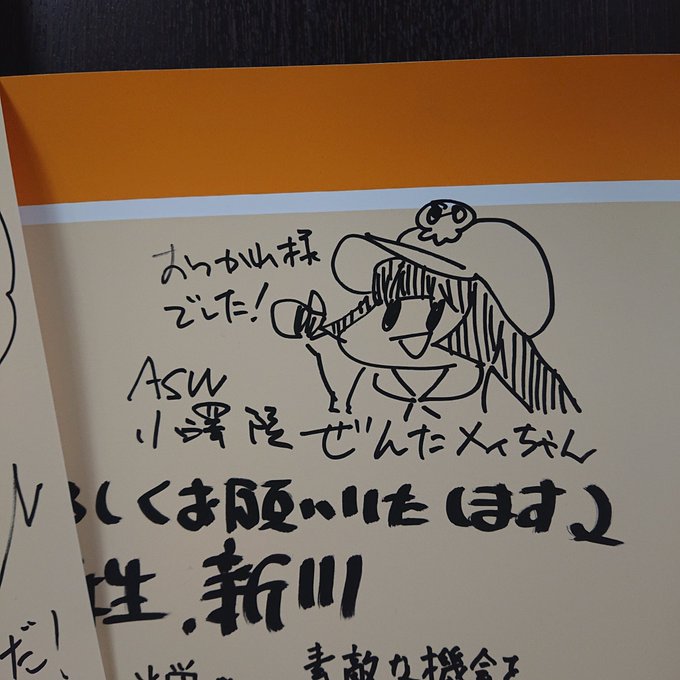 おつかれ様
でした!
ASW
小澤 隆 ぜんだ メイちゃん
しくお願いいたします。
性.新川
素敵な機会を
だ!